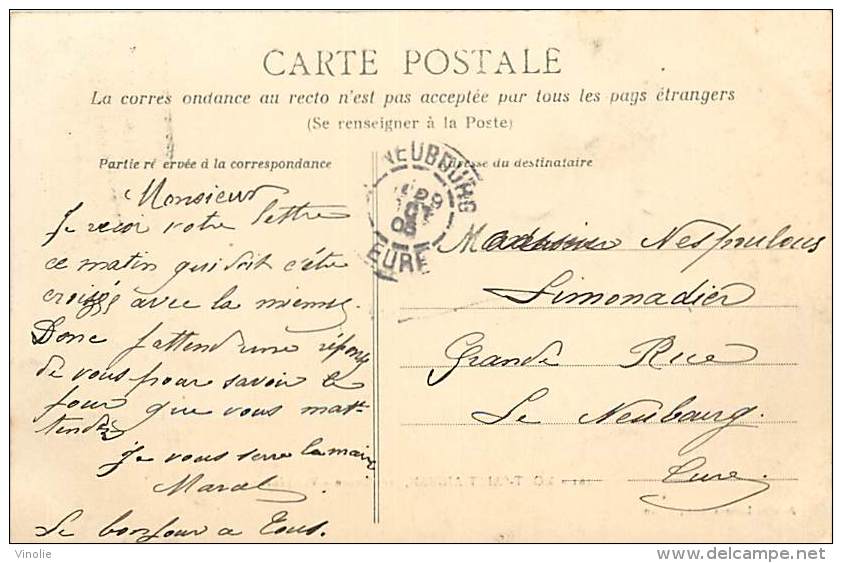 CARTE POSTALE
La corres ondance au recto n'est pas acceptée par tous les pays étrangers
(Se renseigner à la Poste)
Partie ré ervée à la correspondance
Monsieur
Je recoi votre lettre
ce matin qui doit s'étre
croisée avec la mienne
Donc j'attend une réponse
de vous pour savoir le
jour que vous
Je vous serre la main
Marcel
Le bonjour a Tous.
NEUBOURG
29
EURE
Adresse du destinataire
Nespoulous
Limonadier
Grande Rue
Le Neubourg.
Eure.
Vinolie
delcampe.net